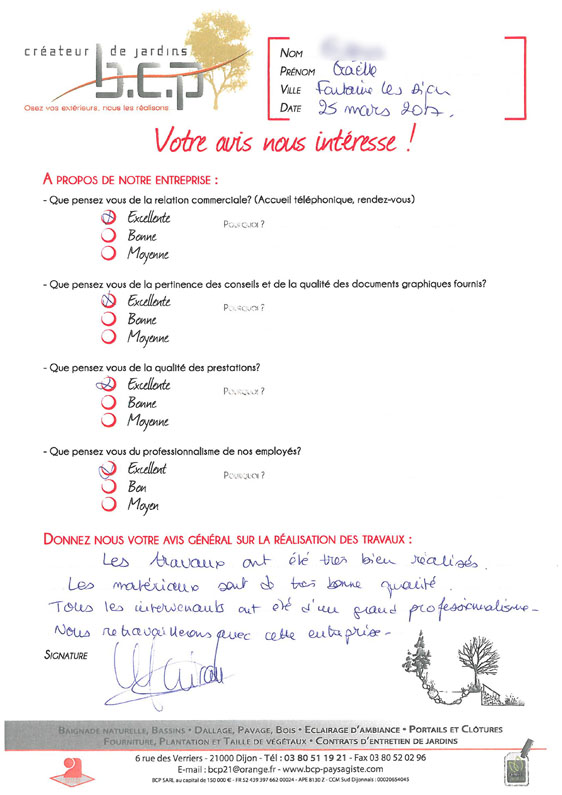 créateur de jardins
b.c.p
Osez vos extérieurs, nous les réalisons
NOM
PRÉNOM Gaëlle
VILLE Fontaine les Dijon
DATE 25 mars 2017.
Votre avis nous intéresse !
A PROPOS DE NOTRE ENTREPRISE :
- Que pensez vous de la relation commerciale? (Accueil téléphonique, rendez-vous)
Excellente POURQUOI ?
Bonne
Moyenne
- Que pensez vous de la pertinence des conseils et de la qualité des documents graphiques fournis?
Excellente POURQUOI ?
Bonne
Moyenne
- Que pensez vous de la qualité des prestations?
Excellente POURQUOI ?
Bonne
Moyenne
- Que pensez vous du professionnalisme de nos employés?
Excellent POURQUOI ?
Bon
Moyen
DONNEZ NOUS VOTRE AVIS GÉNÉRAL SUR LA RÉALISATION DES TRAVAUX :
Les travaux ont été très bien réalisés.
Les matériaux sont de très bonne qualité.
Tous les intervenants ont été d'un grand professionnalisme -
Nous retravaillerons avec cette entreprise -
SIGNATURE
BAIGNADE NATURELLE, BASSINS • DALLAGE, PAVAGE, BOIS • ECLAIRAGE D'AMBIANCE • PORTAILS ET CLÔTURES
FOURNITURE, PLANTATION ET TAILLE DE VÉGÉTAUX • CONTRATS D'ENTRETIEN DE JARDINS
6 rue des Verriers - 21000 Dijon - Tél : 03 80 51 19 21 - Fax 03 80 52 02 96
E-mail : bcp21@orange.fr - www.bcp-paysagiste.com
BCP SARL au capital de 150 000 € - FR 52 439 397 662 00024 - APE 8130 Z - CCM Sud Dijonnais : 00020654045